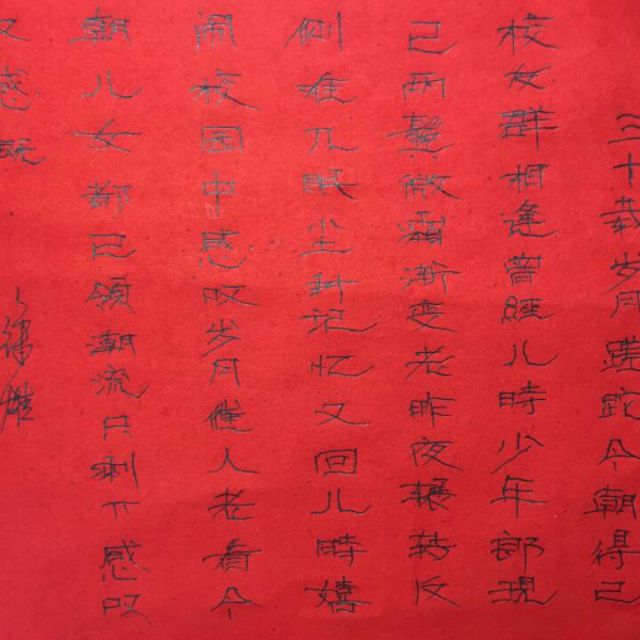 三十载岁月蹉跎今朝得己
校友群相逢曾經儿時少年郎現
己两鬓微霜渐变老昨夜辗转反
侧难眠尘封记忆又回儿時嬉
闹校园中感叹岁月催人老看今
朝儿女都己領潮流只剩下感叹
又感既